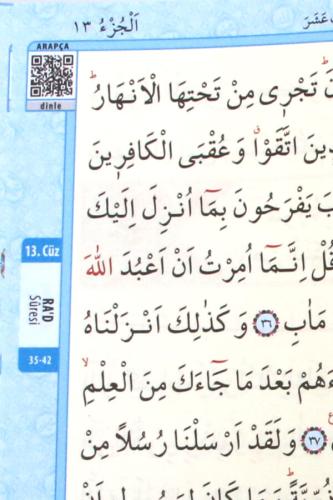 اَلْجُزْءُ ١٣
ARAPÇA
dinle
تَجْرٖى مِنْ تَحْتِهَا الْاَنْهَارُ
اتَّقَوْا وَعُقْبَى الْكَافِرٖينَ
يَفْرَحُونَ بِمَٓا اُنْزِلَ اِلَيْكَ
قُلْ اِنَّمَٓا اُمِرْتُ اَنْ اَعْبُدَ اللّٰهَ
13. Cüz
مَاٰبِ ﴿٣٦﴾ وَكَذٰلِكَ اَنْزَلْنَاهُ
RA'D
Sûresi
35-42
بَعْدَ مَا جَٓاءَكَ مِنَ الْعِلْمِ
﴿٣٧﴾ وَلَقَدْ اَرْسَلْنَا رُسُلًا مِنْ